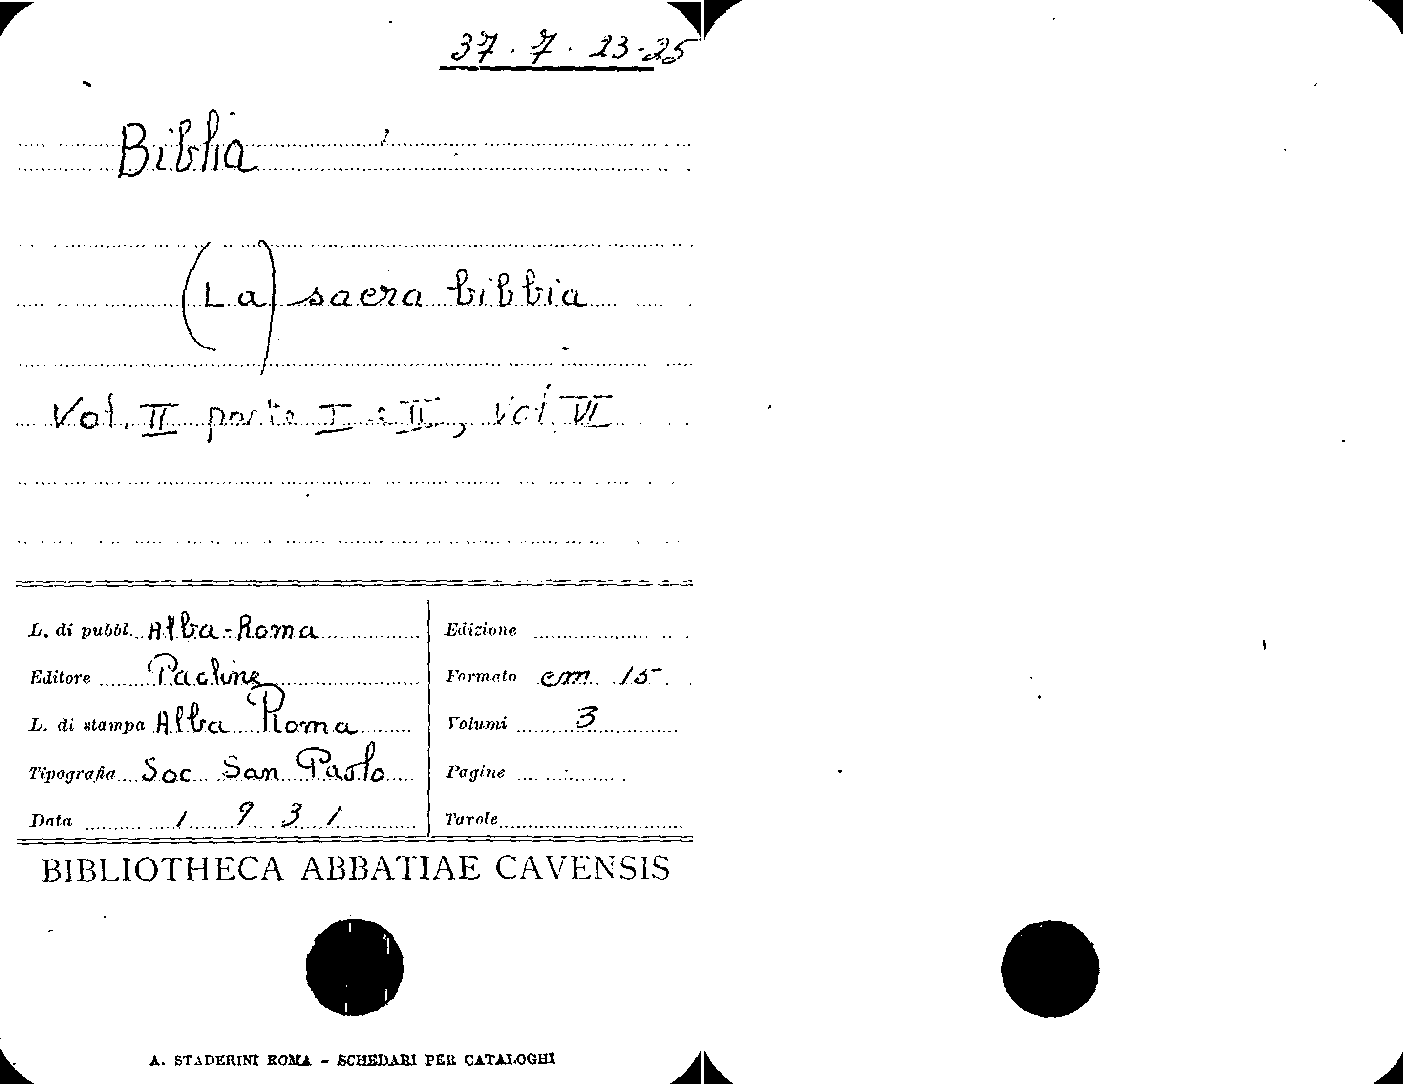 37.7.23-25
Biblia
(La) sacra bibbia
Vol. II parte I e II, vol VI
L. di pubbl. Alba-Roma
Editore Paoline
L. di stampa Alba Roma
Tipografia Soc San Paolo
Data 1931
Edizione
Formato cm 15
Volumi 3
Pagine
Tavole
BIBLIOTHECA ABBATIAE CAVENSIS
A. STADERINI ROMA - SCHEDARI PER CATALOGHI